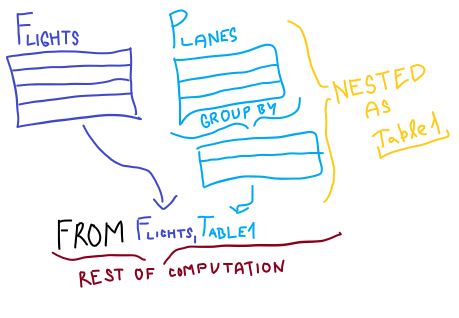 FLIGHTS
PLANES
GROUP BY
NESTED
AS
Table1
FROM FLIGHTS, TABLE1
REST OF COMPUTATION